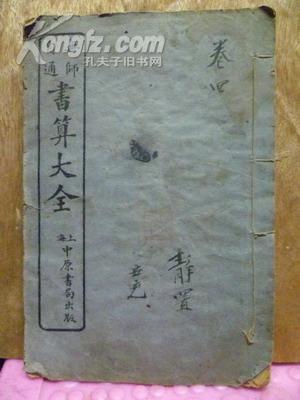 kongfz.com
孔夫子旧书网
師
通
書算大全
上海
中原書局出版
卷四
靜置